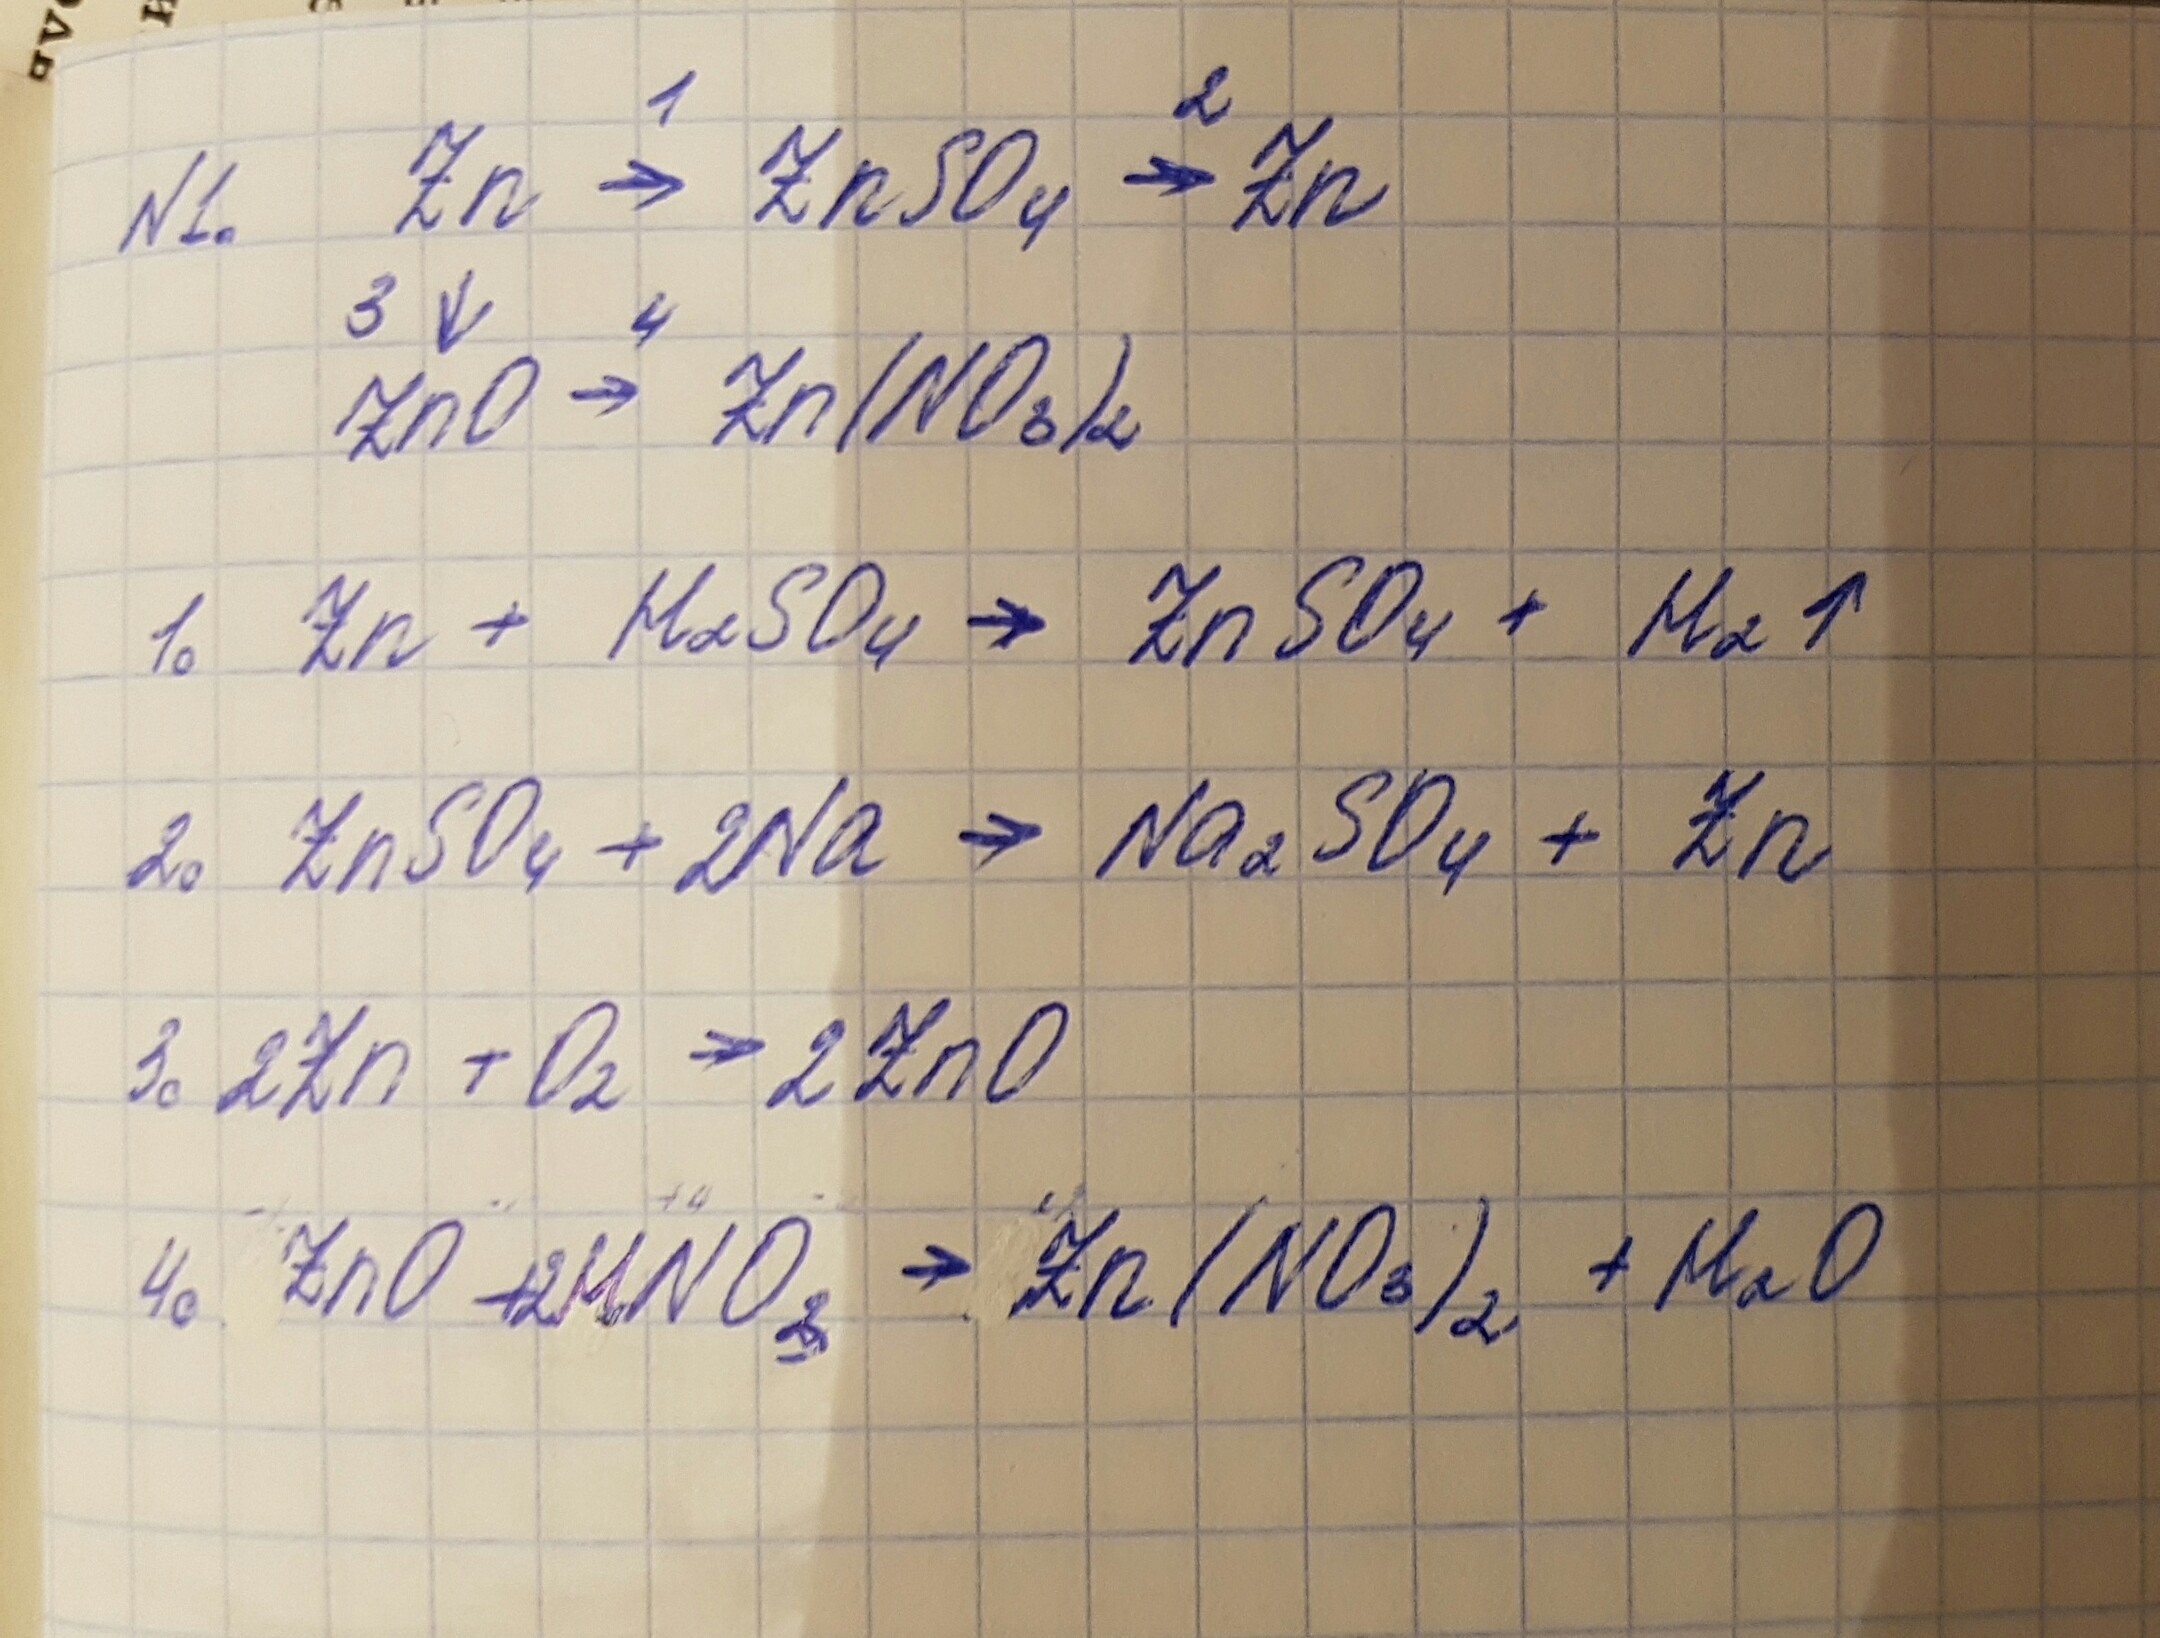 1 2
N1. Zn → ZnSO₄ → Zn
3 ↓ 4
ZnO → Zn(NO₃)₂
1. Zn + H₂SO₄ → ZnSO₄ + H₂↑
2. ZnSO₄ + 2Na → Na₂SO₄ + Zn
3. 2Zn + O₂ → 2ZnO
4. ZnO + 2HNO₃ → Zn(NO₃)₂ + H₂O